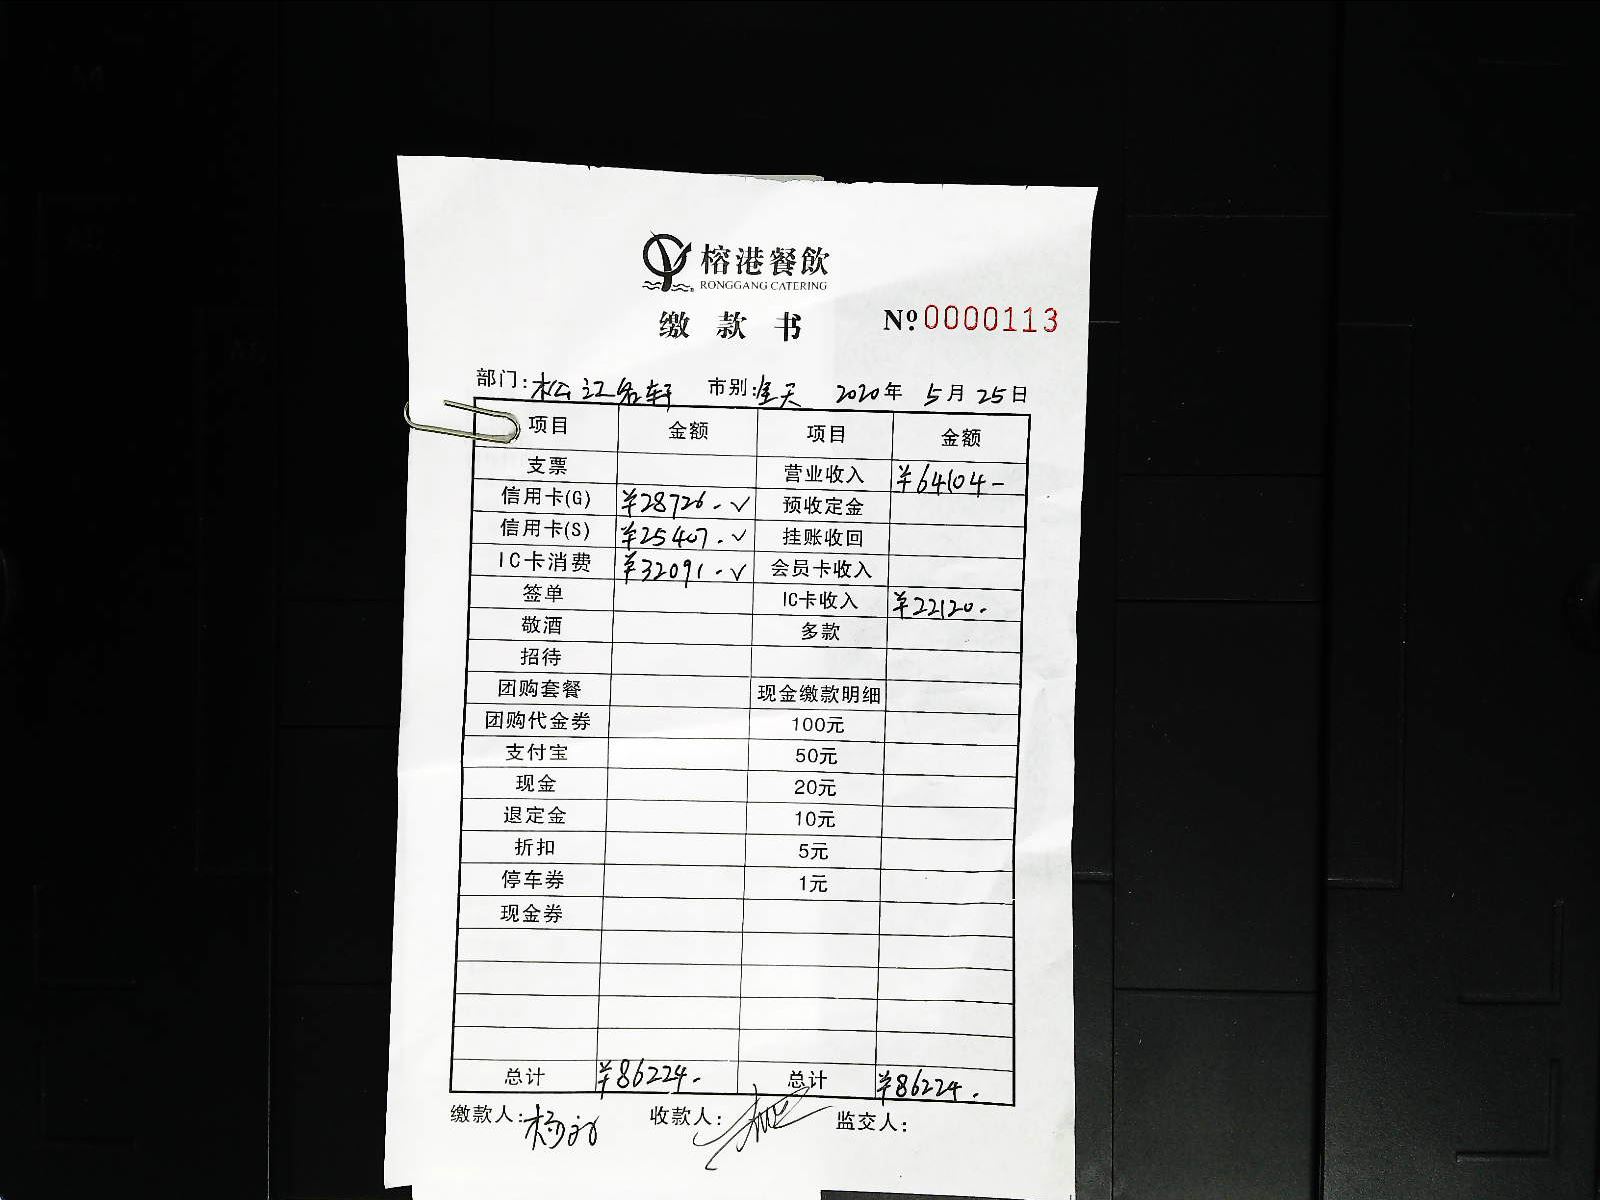 榕港餐飲
RONGGANG CATERING
缴款书 Nº 0000113
部门:松江名轩 市别:全天 2020年5月25日
项目 金额 项目 金额
支票 营业收入 ¥64104-
信用卡(G) ¥28726.✓ 预收定金
信用卡(S) ¥25407.✓ 挂账收回
IC卡消费 ¥32091.✓ 会员卡收入
签单 IC卡收入 ¥22120.
敬酒 多款
招待
团购套餐 现金缴款明细
团购代金券 100元
支付宝 50元
现金 20元
退定金 10元
折扣 5元
停车券 1元
现金券
总计 ¥86224. 总计 ¥86224.
缴款人: 收款人: 监交人: